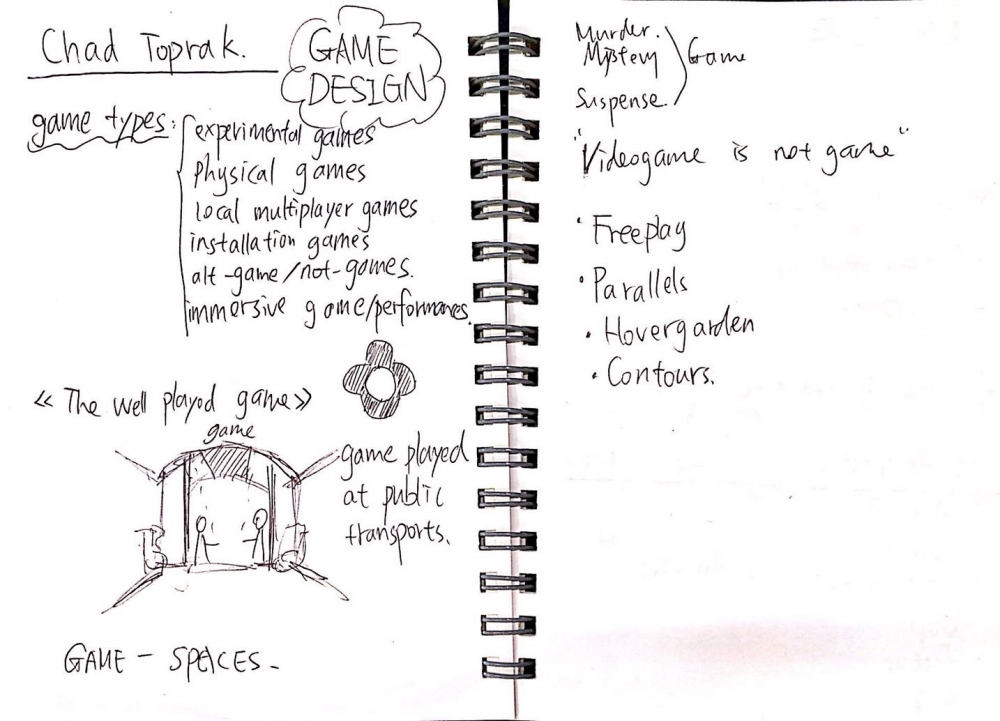 Chad Toprak.
GAME
DESIGN
game types:
experimental games
physical games
local multiplayer games
installation games
alt-game/not-games.
immersive game/performances.
《The well played game》
game
game played
at public
transports.
GAME - SPACES -
Murder.
Mystery
Suspense.
Game
"Videogame is not game"
· Freeplay
· Parallels
· Hovergarden
· Contours.